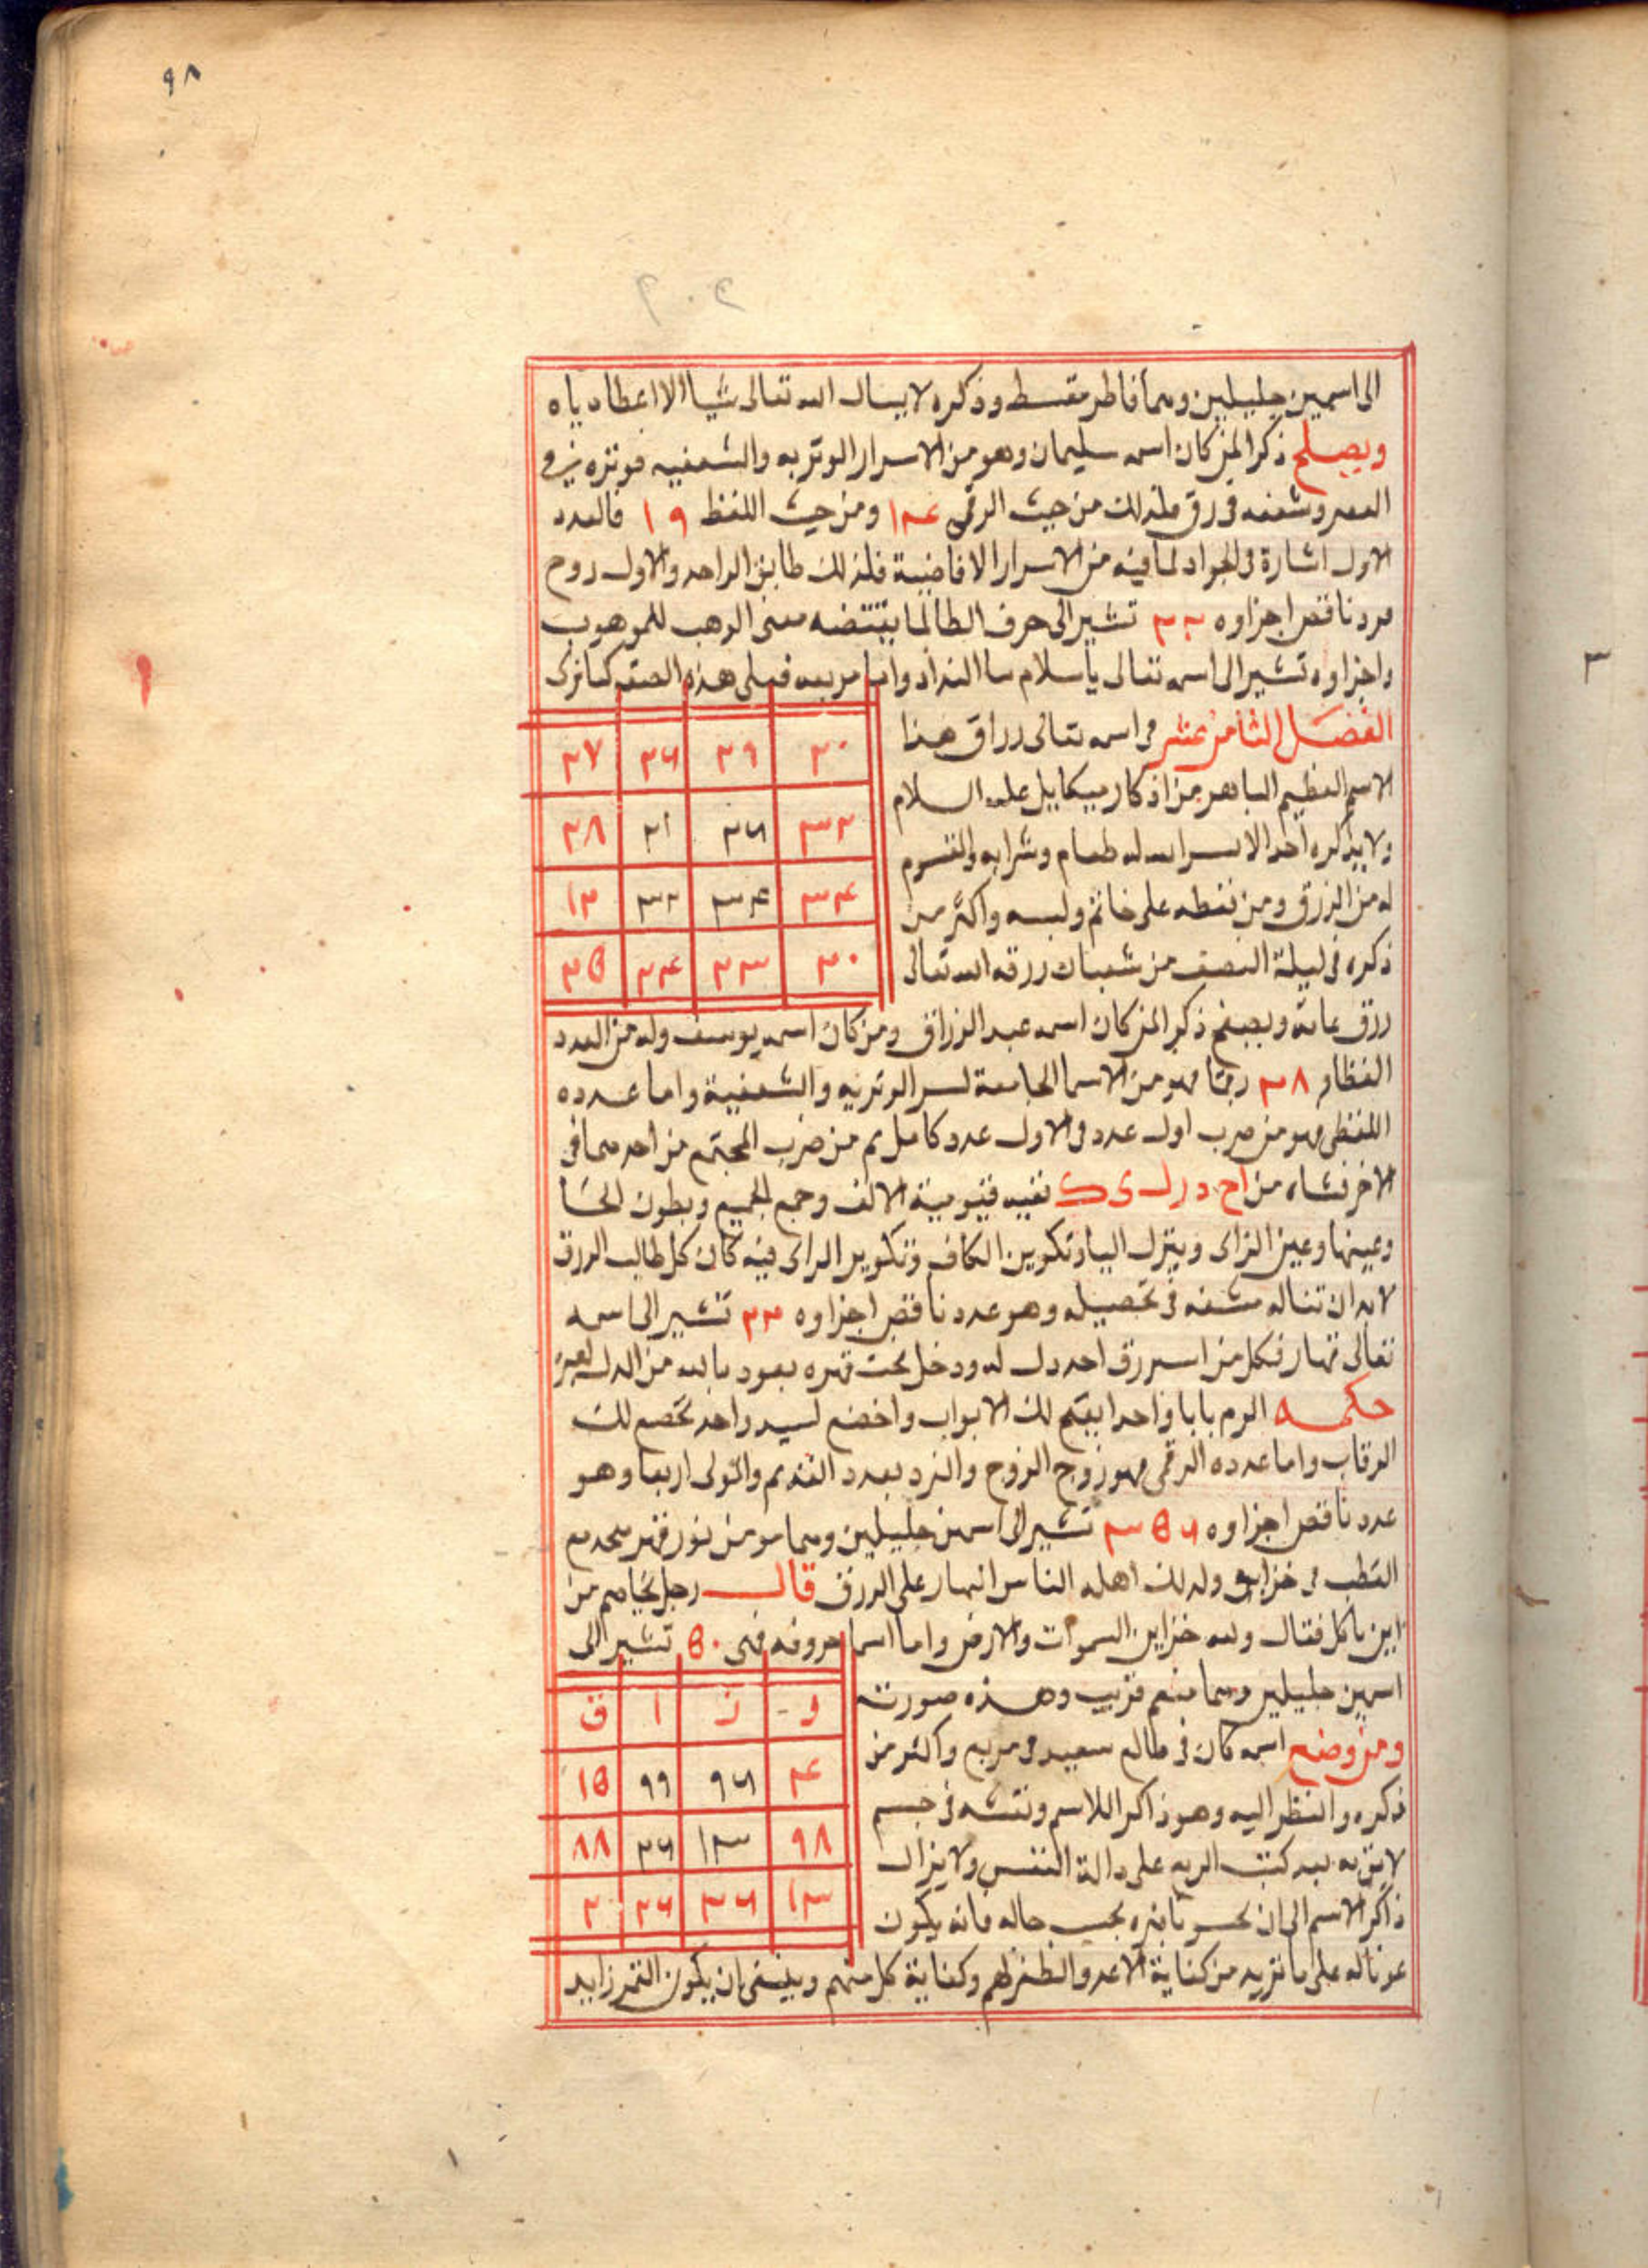 ٩٨
الى اسمين جليلين وهما فاطر مقسط وذكره لا يسال الله تعالى شيا الا اعطاه اياه
ويصلح ذكرا لمن كان اسمه سليمان وهو من الاسرار الوتريه والشفعيه فوتره في
وشفعه في رق فلذلك من حيث الرقمى ١٣٤ ومن حيث اللفظ ١٩ فالعدد
الاول اشارة الجواد لما فيه من الاسرار الافاضية فلذلك طابق الواحد والاول زوج
فرد ناقص اجزاوه ٢٢ تشير الى حرف الطا لما يقتضه معنى الوهب للموهوب
واجزاوه تشير الى اسمه تعالى يا سلام بيا الندا واما مربعه فعلى هذه الصفه كما ترى
الفصل الثامن عشر في اسمه تعالى رزاق هذا
الاسم العظيم الباهر من اذكار ميكاييل عليه السلام
ولا يذكره احد الا يسر الله له طعام وشرابه
له من الرزق ومن نقطه على خاتم ولبسه واكثر من
ذكره في ليلة النصف من شعبان رزقه الله تعالى
٢٠ ٢٩ ٢٦ ٢٧
٣٢ ٢٦ ٢١ ٢٨
٣٤ ٣٤ ٣٢ ١٢
٢٠ ٢٣ ٢٤ ٢٥
رزق عامه ويصلح ذكرا لمن كان اسمه عبد الرزاق ومن كان اسمه يوسف وله من العدد
٣٨ رقما فهو من الاسما الجامعة لسر الوتريه والشفعية واما عدده
اللفظى فهو من ضرب اول عدد في الاول عدد كامل ثم من ضرب المجتمع من احدهما في
الاخر نشاه من اح د ر ل ى ك ففيه قيومية الالف وجمع الجميع وبطون الحا
وعينها وعين الزاى وينزل اليا وتكوين الكاف وتكوير الراى فيه كان كل طالب الرزق
لابد ان تناله مشقه في تحصيله وهو عدد ناقص اجزاوه ٣٢ تشير الى اسمه
تعالى قهار فكل من اسر رزق احد دل له ودخل تحت قهره نعود بالله من الدل لغير
حكمه الزم بابا واحدا يفتح لك الابواب واخضع لسيد واحد تخضع لك
الرقاب واما عدده الرقمى فهو زوج الزوج والفرد بعدد وهو
عدد ناقص اجزاوه ٣٥٦ تشير الى اسمين جليلين وهما
القطب في ولدلك اهله الناس انهار على الرزق قال رجل لحاتم من
اين تاكل فقال ولله خزاين السموات والارض واما اسما حروفه فهى ٥٠ تشير الى
اسمين جليلين وهما منعم قريب وهذه صورته
ومن وضع اسمه كان في طالع سعيد في مربع واكثر من
ذكره والنظر اليه وهو ذاكر اللاسم ونقشه في جسم
لايق به على دالة النفس ولا يزال
ذاكر الاسم الى ان يحس تاثيره بحسب حاله فانه يكون
ر ز ا ق
٤ ٩٦ ٩٩ ١٥
٩٨ ١٣ ٢٦ ٨٨
١٣ ٣٦ ٢٦ ٢
عونا له على ما تريد من كفاية الاعدو والظفر لهم وكفاية كل منهم وينبغى ان يكون القمر زايد